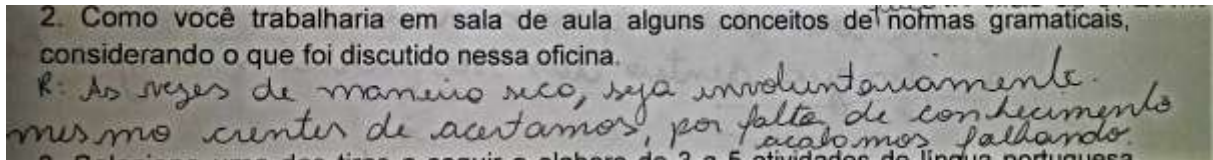 2. Como você trabalharia em sala de aula alguns conceitos de normas gramaticais,
considerando o que foi discutido nessa oficina.
R: As vezes de maneira seca, seja involuntariamente.
mesmo cientes de acertamos, por falta de conhecimento
acabamos falhando